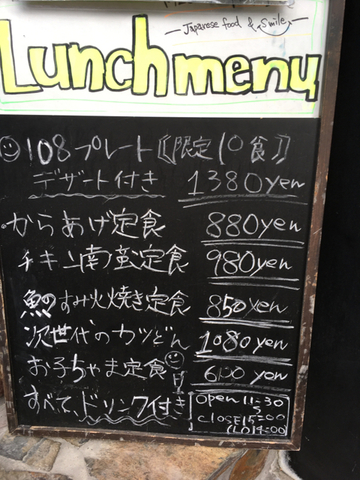 Japanese food & Smile
Lunch menu
108プレート〖限定10食〗
デザート付き 1380yen
からあげ定食 880yen
チキン南蛮定食 980yen
すみ火焼き定食 850yen
次世代のカツどん 1080yen
お子ちゃま定食 600yen
すべて、ドリンク付き
open 11:30
〜
CLOSE15:00
(LO14:00)